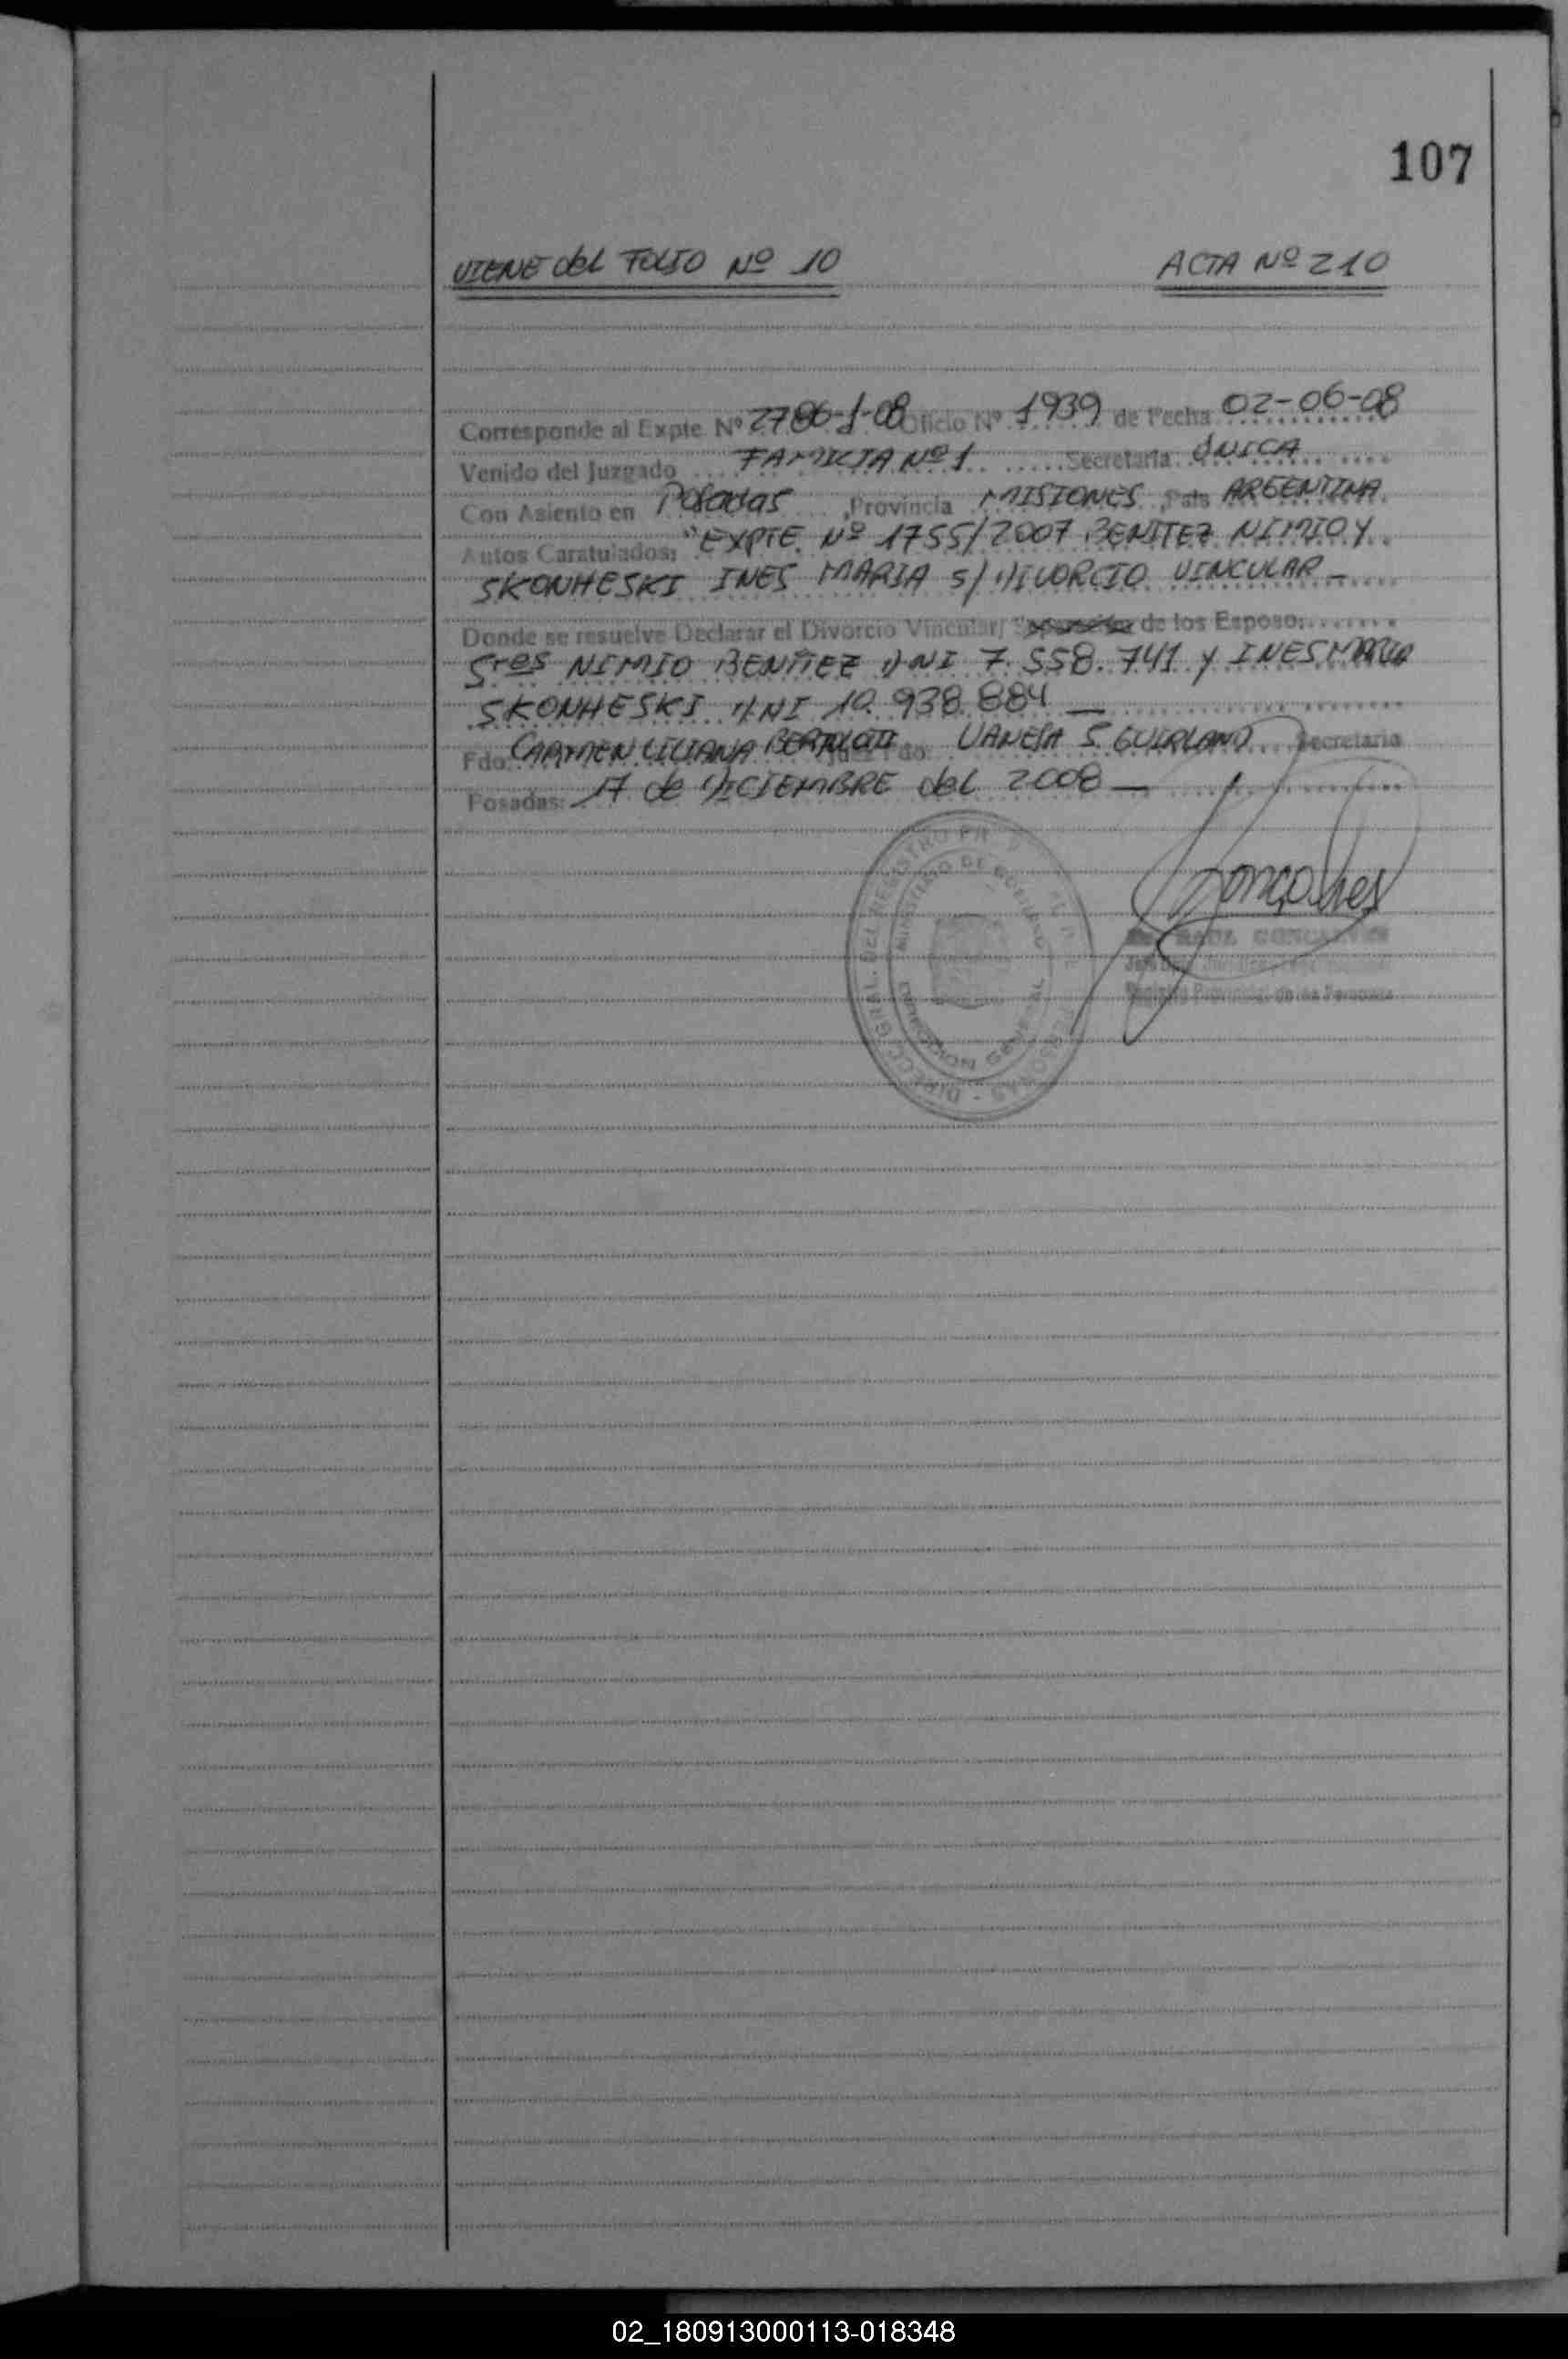 107
VIENE del FOLIO Nº 10 ACTA Nº 210
Corresponde al Expte. Nº 2786-J-08 Oficio Nº 1939 de Fecha 02-06-08
Venido del Juzgado FAMILIA Nº 1 Secretaria ÚNICA
Con Asiento en Posadas, Provincia MISIONES, País ARGENTINA
Autos Caratulados: "EXPTE. Nº 1755/2007 BENITEZ NIMIO Y
SKONHESKI INES MARIA S/ DIVORCIO VINCULAR -
Donde se resuelve Declarar el Divorcio Vincular/ de los Esposo:
Sres NIMIO BENITEZ DNI 7.558.741 y INES MARIA
SKONHESKI DNI 10.938.884 -
Fdo: CARMEN LILIANA Juez Fdo: VANESA S. GUIRLAND Secretaria
Posadas: 17 de DICIEMBRE del 2008 -
DIRECC. GRAL. DEL REGISTRO PERSONAS
MINISTERIO DE GOBIERNO
DIRECCION GENERAL
Gonçalves
RAUL GONCALVES
Registro Provincial de las Personas
02_180913000113-018348